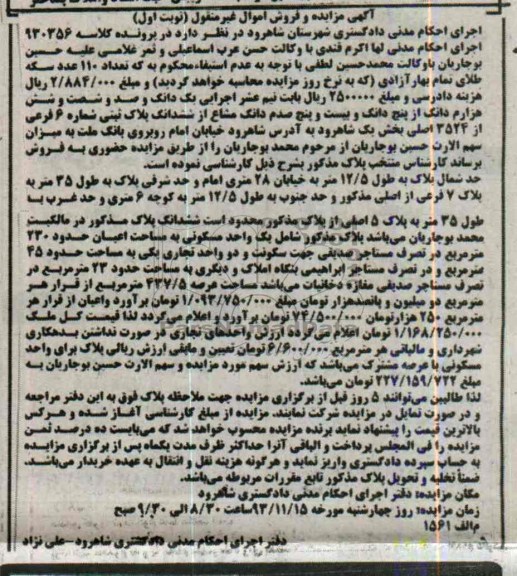 آگهی مزایده و فروش اموال غیرمنقول (نوبت اول)
اجرای احکام مدنی دادگستری شهرستان شاهرود در نظر دارد در پرونده کلاسه ۹۳۰۳۵۶
اجرای احکام مدنی لها اکرم قندی با وکالت حسن عرب اسماعیلی و ثمر غلامی علیه حسین
بوجاریان باوکالت محمدحسین لطفی با توجه به عدم استیفاءمحکوم به که تعداد ۱۱۰ عدد سکه
طلای تمام بهارآزادی (که به نرخ روز مزایده محاسبه خواهد گردید) و مبلغ ۲/۸۸۴/۰۰۰ ریال
هزینه دادرسی و مبلغ ۲۵۰۰۰۰۰ ریال بابت نیم عشر اجرایی یک دانگ و صد و شصت و شش
هزارم دانگ از پنج دانگ و بیست و پنج صدم دانگ مشاع از ششدانگ پلاک ثبتی شماره ۶ فرعی
از ۳۵۲۴ اصلی بخش یک شاهرود به آدرس شاهرود خیابان امام روبروی بانک ملت به میزان
سهم الارث حسین بوجاریان از مرحوم محمد بوجاریان را از طریق مزایده حضوری به فروش
برساند کارشناس منتخب پلاک مذکور بشرح ذیل کارشناسی نموده است.
حد شمال پلاک به طول ۱۲/۵ متر به خیابان ۲۸ متری امام و حد شرقی پلاک به طول ۳۵ متر به
پلاک ۷ فرعی از اصلی مذکور و حد جنوب به طول ۱۲/۵ متر به کوچه ۶ متری و حد غرب با
طول ۳۵ متر به پلاک ۵ اصلی از پلاک مذکور محدود است ششدانگ پلاک مذکور در مالکیت
محمد بوجاریان می‌باشد پلاک مذکور شامل یک واحد مسکونی به مساحت اعیان حدود ۲۳۰
مترمربع در تصرف مستاجر صدیقی جهت سکونت و دو واحد تجاری یکی به مساحت حدود ۴۵
مترمربع و در تصرف مستاجر ابراهیمی بنگاه املاک و دیگری به مساحت حدود ۲۳ مترمربع در
تصرف مستاجر صدیقی مغازه دخانیات می‌باشد مساحت عرصه ۴۳۷/۵ مترمربع از قرار هر
مترمربع دو میلیون و پانصدهزار تومان مبلغ ۱/۰۹۳/۷۵۰/۰۰۰ تومان برآورد واعیان از قرار هر
مترمربع ۲۵۰ هزارتومان ۷۴/۵۰۰/۰۰۰ تومان برآورد و اعلام می‌گردد لذا قیمت کل ملک
۱/۱۶۸/۲۵۰/۰۰۰ تومان اعلام می‌گردد ارزش واحدهای تجاری در صورت نداشتن بدهکاری
شهرداری و مالیاتی هر مترمربع ۶/۶۰۰/۰۰۰ تومان تعیین و مابقی ارزش ریالی پلاک برای واحد
مسکونی با عرصه مشترک می‌باشد که ارزش سهم مورد مزایده و سهم الارث حسین بوجاریان به
مبلغ ۲۲۷/۱۵۹/۷۲۲ تومان می‌باشد.
لذا طالبین می‌توانند ۵ روز قبل از برگزاری مزایده جهت ملاحظه پلاک فوق به این دفتر مراجعه
و در صورت تمایل در مزایده شرکت نمایند. مزایده از مبلغ کارشناسی آغاز شده و هرکس
بالاترین قیمت را پیشنهاد نماید برنده مزایده محسوب خواهد شد که می‌بایست ده درصد ثمن
مزایده را فی المجلس پرداخت و الباقی آنرا حداکثر ظرف مدت یکماه پس از برگزاری مزایده
به حساب سپرده دادگستری واریز نماید و هرگونه هزینه نقل و انتقال به عهده خریدار می‌باشد.
ضمناً تخلیه و تحویل پلاک مذکور تابع مقررات مربوطه می‌باشد.
مکان مزایده: دفتر اجرای احکام مدنی دادگستری شاهرود
زمان مزایده: روز چهارشنبه مورخه ۹۳/۱۱/۱۵ ساعت ۸/۳۰ الی ۹/۳۰ صبح
م‌الف ۱۵۶۱
دفتر اجرای احکام مدنی دادگستری شاهرود-علی نژاد